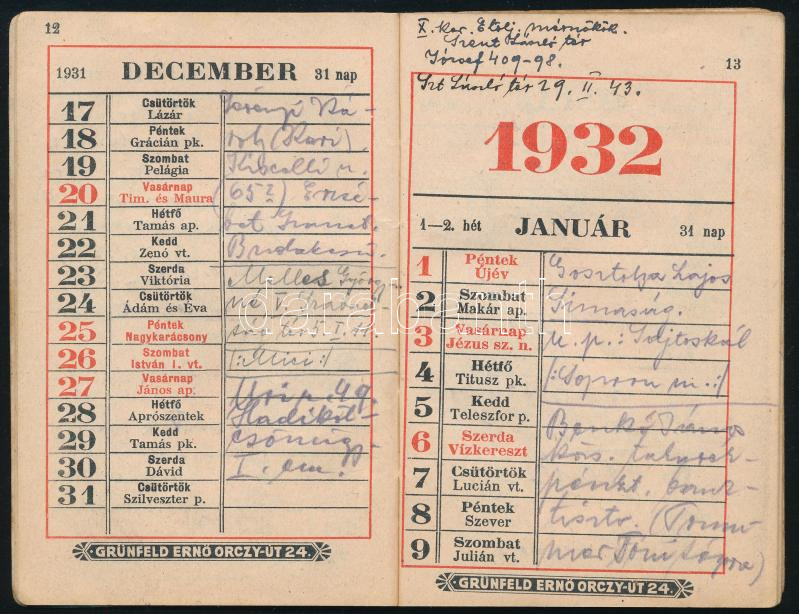 12
1931 DECEMBER 31 nap
17 Csütörtök
Lázár
18 Péntek
Grácián pk.
19 Szombat
Pelágia
20 Vasárnap
Tim. és Maura
21 Hétfő
Tamás ap.
22 Kedd
Zenó vt.
23 Szerda
Viktória
24 Csütörtök
Ádám és Éva
25 Péntek
Nagykarácsony
26 Szombat
István I. vt.
27 Vasárnap
János ap.
28 Hétfő
Aprószentek
29 Kedd
Tamás pk.
30 Szerda
Dávid
31 Csütörtök
Szilveszter p.
roly (Kari)
Kiscelli u.
(65
/:Mici:/
I. em.
GRÜNFELD ERNŐ ORCZY-ÚT 24.
X. ker. Elölj. mérnökök.
Szent László tér
József 409-98.
Szt László tér 29. II. 43.
13
1932
1—2. hét JANUÁR 31 nap
1 Péntek
Újév
2 Szombat
Makár ap.
3 Vasárnap
Jézus sz. n.
4 Hétfő
Titusz pk.
5 Kedd
Teleszfor p.
6 Szerda
Vízkereszt
7 Csütörtök
Lucián vt.
8 Péntek
Szever
9 Szombat
Julián vt.
Gosztolya Lajos
Simaság.
u. p.: Sajtoskál
/:Sopron m.:/
Benkő János
GRÜNFELD ERNŐ ORCZY-ÚT 24.
darabanth